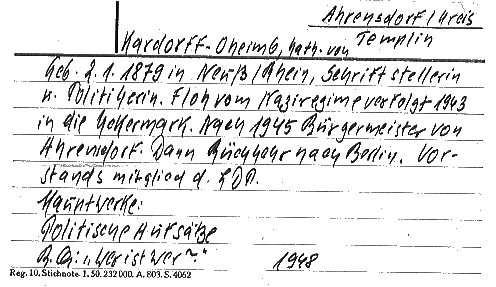 Ahrensdorf/Kreis
Templin
Kardorff-Oheimb, Kath. von
Geb. 2.1.1879 in Neuß/Rhein, Schriftstellerin
u. Politikerin. Floh vom Naziregime verfolgt 1943
in die Uckermark. Nach 1945 Bürgermeister von
Ahrensdorf. Dann Rückkehr nach Berlin. Vor-
standsmitglied d. LDP.
Hauptwerke:
Politische Aufsätze
B.Q.: „Wer ist wer?" 1948
Reg. 10. Stichnote 1. 50. 232000. A. 803. S. 4062